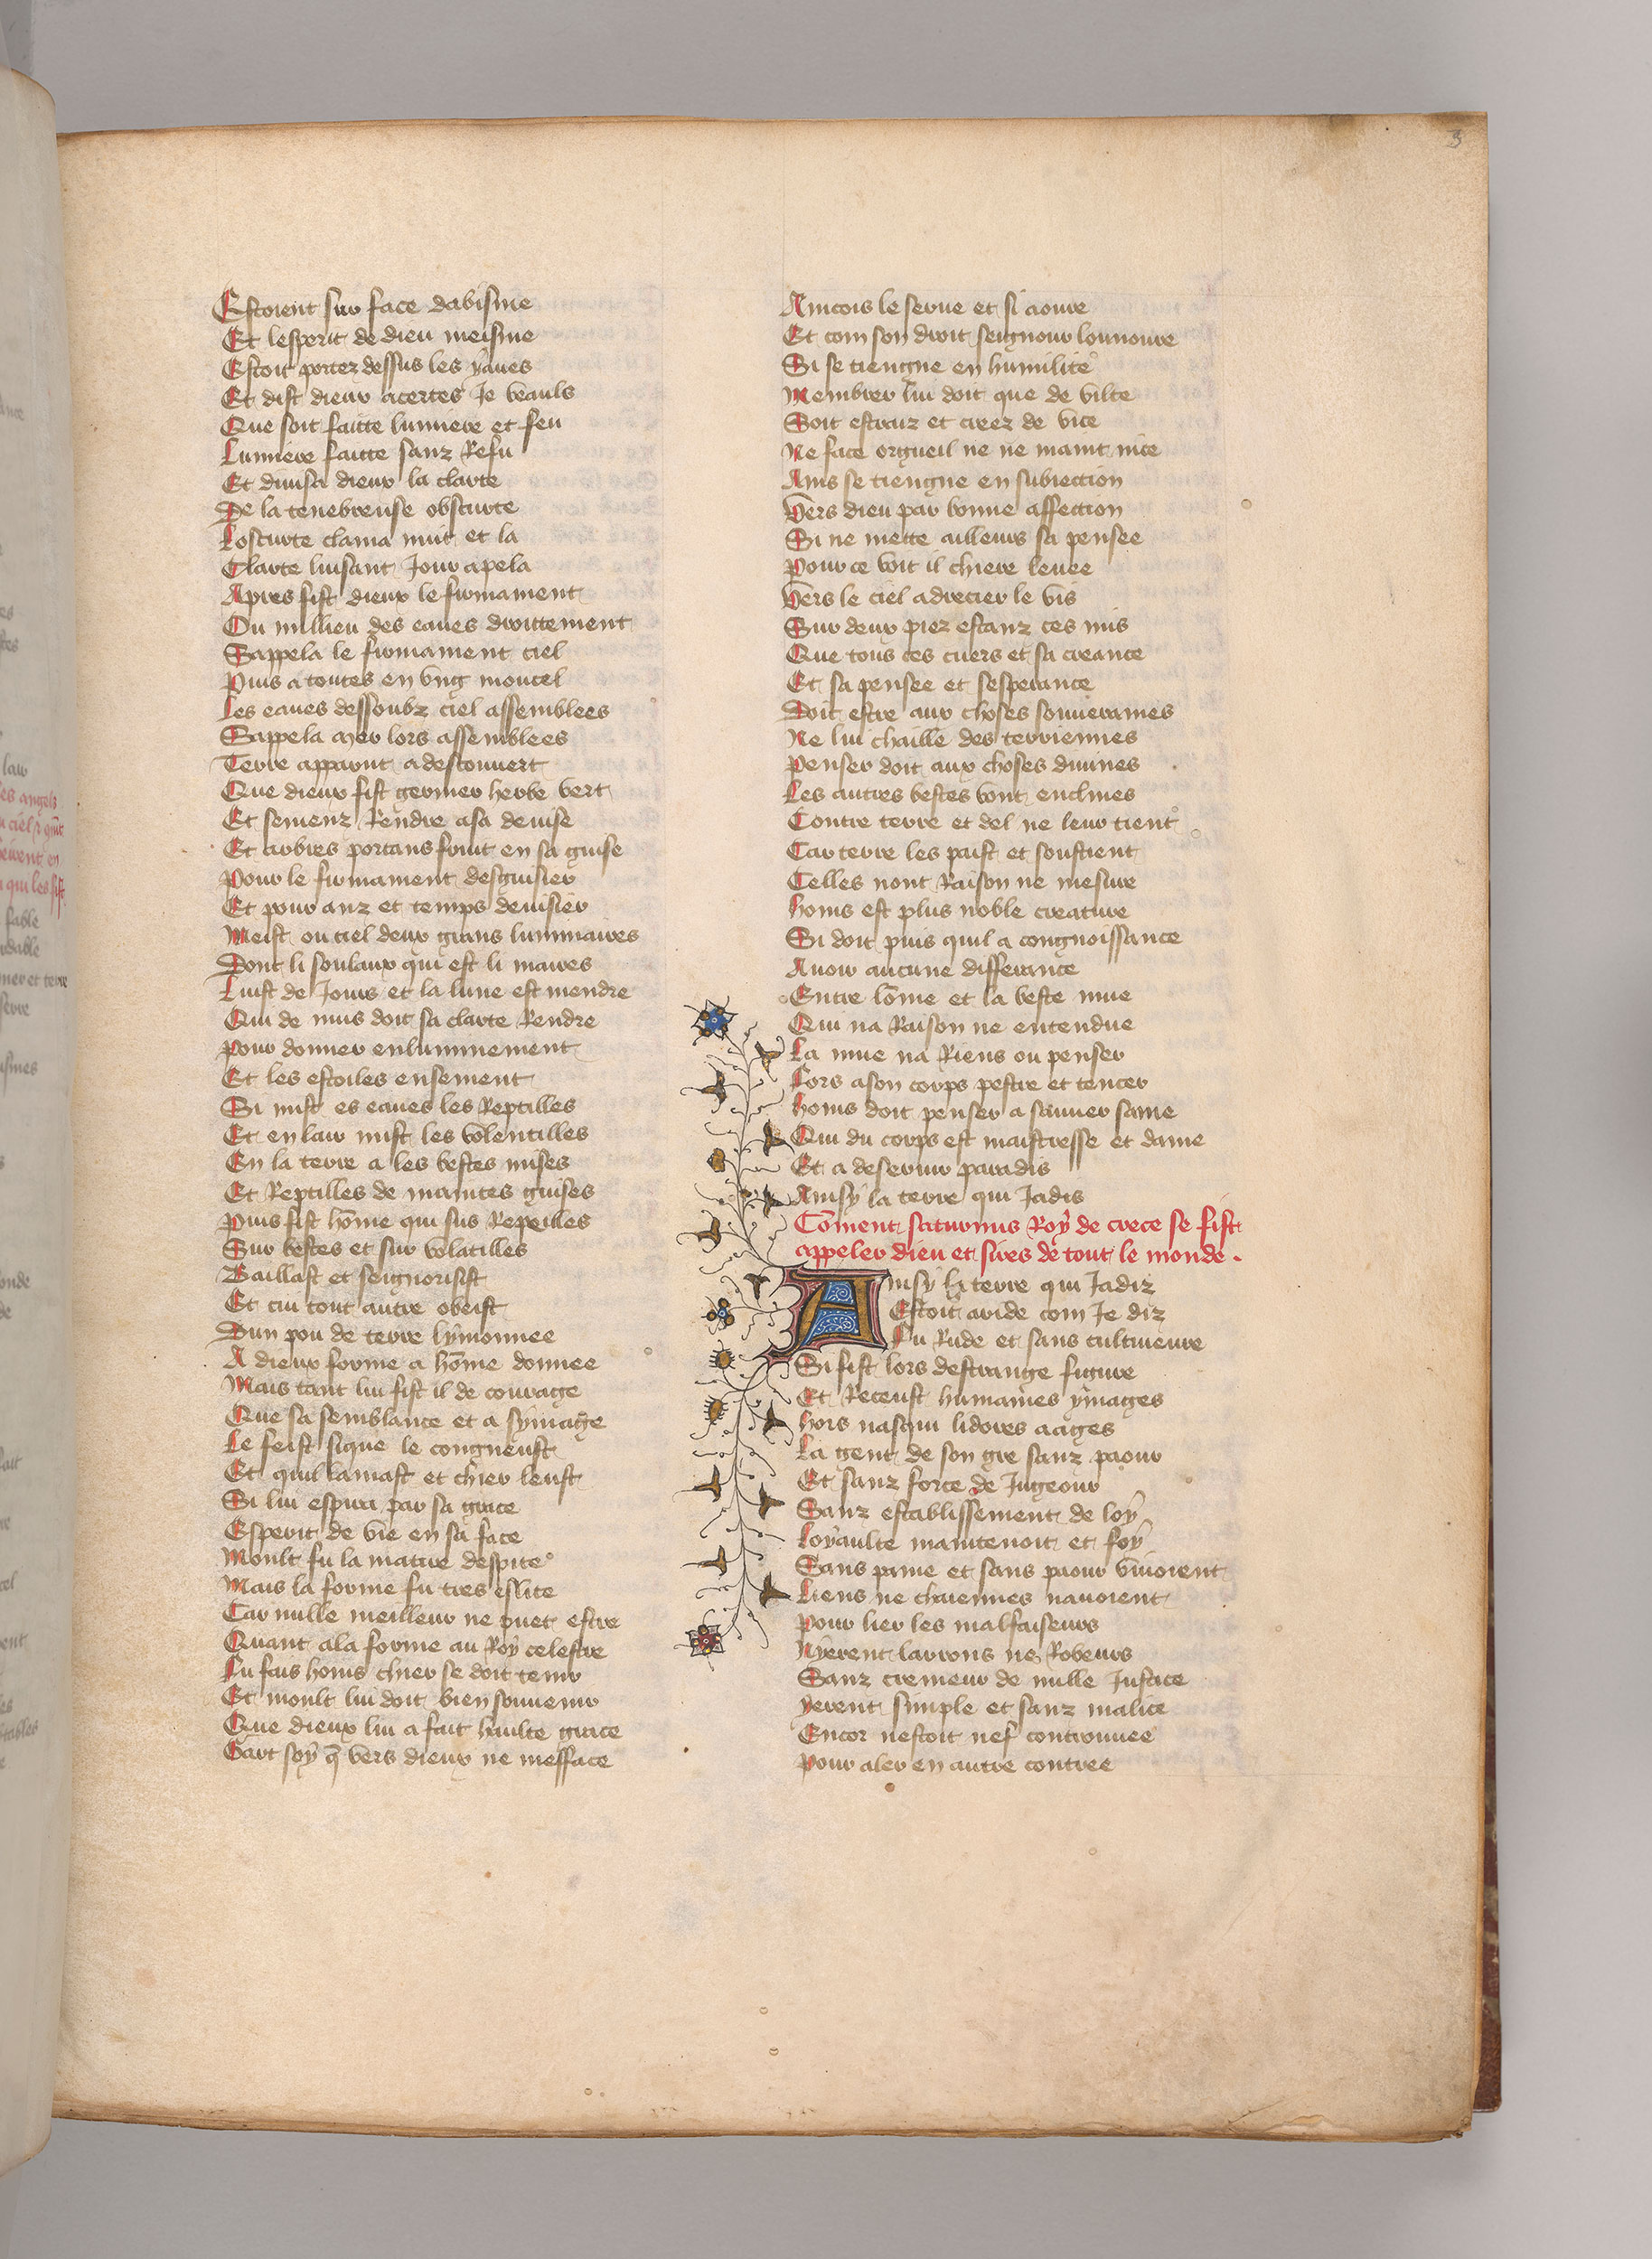 3
Estoient sur face dabisme
Et lesperit de dieu meisme
Estoit portez dessus les yaues
Et dist dieux acertes Je veauls
Que soit faitte lumiere et feu
Lumiere faitte sanz Refu
Et diuisa dieux la clarte
De la tenebreuse obscurte
Loscurte clama nuit et la
Clarte luisant Jour apela
Apres fist dieux le firmament
Ou millieu des eaues droittement
Sappela le firmament ciel
Puis a toutes en vng moncel
Les eaues dessoubz ciel assemblees
Sappela mer lors assemblees
Terre apparut a descouuert
Que dieux fist germer herbe vert
Et semenz Rendre a sa deuise
Et arbres portans fruit en sa guise
Pour le firmament desguisier
Et pour anz et temps deuisier
Meist ou ciel deux grans luminaires
Dont li soulaux qui est li maires
Luist de Jours et la lune est mendre
Qui de nuis doit sa clarte Rendre
Pour donner enluminement
Et les estoiles ensement
Si mist es eaues les Reptilles
Et en lair mist les volentilles
En la terre a les bestes mises
Et Reptilles de maintes guises
Puis fist hōme qui sus Repeilles
Sur bestes et sur volatilles
Baillast et seignorisist
Et cui tout autre obeist
Dun pou de terre lymonnee
A dieux forme a hōme donnee
Mais tant lui fist il de courage
Que sa semblance et a symage
Le feist sique le congneust
Et quil lamast et chier leust
Si lui espira par sa grace
Esperit de vie en sa face
Moult fu la matire despite
Mais la forme fu tres eslite
Car nulle meilleur ne puet estre
Quant a la forme au Roy celestre
Fu fais homs chier se doit tenir
Et moult lui doit bien souuenir
Que dieux lui a fait haulte grace
Gart soy q̄ vers dieux ne mefface
Aincois le serue et si aoure
Et com son droit seignour lonnoure
Si se tiengne en humilite
Membrer lui doit que de vilte
Soit estraiz et creez de vice
Ne face orgueil ne ne maint nice
Ains se tiengne en subiection
Vers dieu par bonne affection
Si ne mette ailleurs sa pensee
Pour ce voit il chiere leuee
Vers le ciel adrecier le vis
Sur deux piez estanz ces mis
Que tous ces cuers et sa creance
Et sa pensee et sesperance
Doit estre aux choses souueraines
Ne lui chaille des terriennes
Penser doit aux choses diuines
Les autres bestes vont enclines
Contre terre et del ne leur tient
Car terre les paist et soustient
Celles nont Raison ne mesure
Homs est plus noble creature
Si doit puis quil a congnoissance
Auoir aucune differance
Entre lōme et la beste mue
Qui na Raison ne entendue
La mue na Riens ou penser
Fors a son corps pestre et tencer
Homs doit penser a sauuer same
Qui du corps est maistresse et dame
Et a deseruir paradis
Ainsy la terre qui Jadis
Cōment saturnus Roy de crece se fist
appeler dieu et sires de tout le monde .
Ainsy la terre qui Jadiz
Estoit aride com Je diz
Fu Rude et sans cultiueure
Si fist lors destrange figure
Et Receust humaines ymages
Lors nasqui li dores aages
La gent de son gre sanz paour
Et sanz force de Jugeour
Sanz establissement de loy
Loyaulte maintenoit et foy
Sans paine et sans paour viuoient
Liens ne chaiennes nauoient
Pour lier les malfaiseurs
Nyerent larrons ne Robeurs
Sanz cremeur de nulle Justice
Yerent simple et sanz malice
Encor nestoit nef controuuee
Pour aler en autre contree